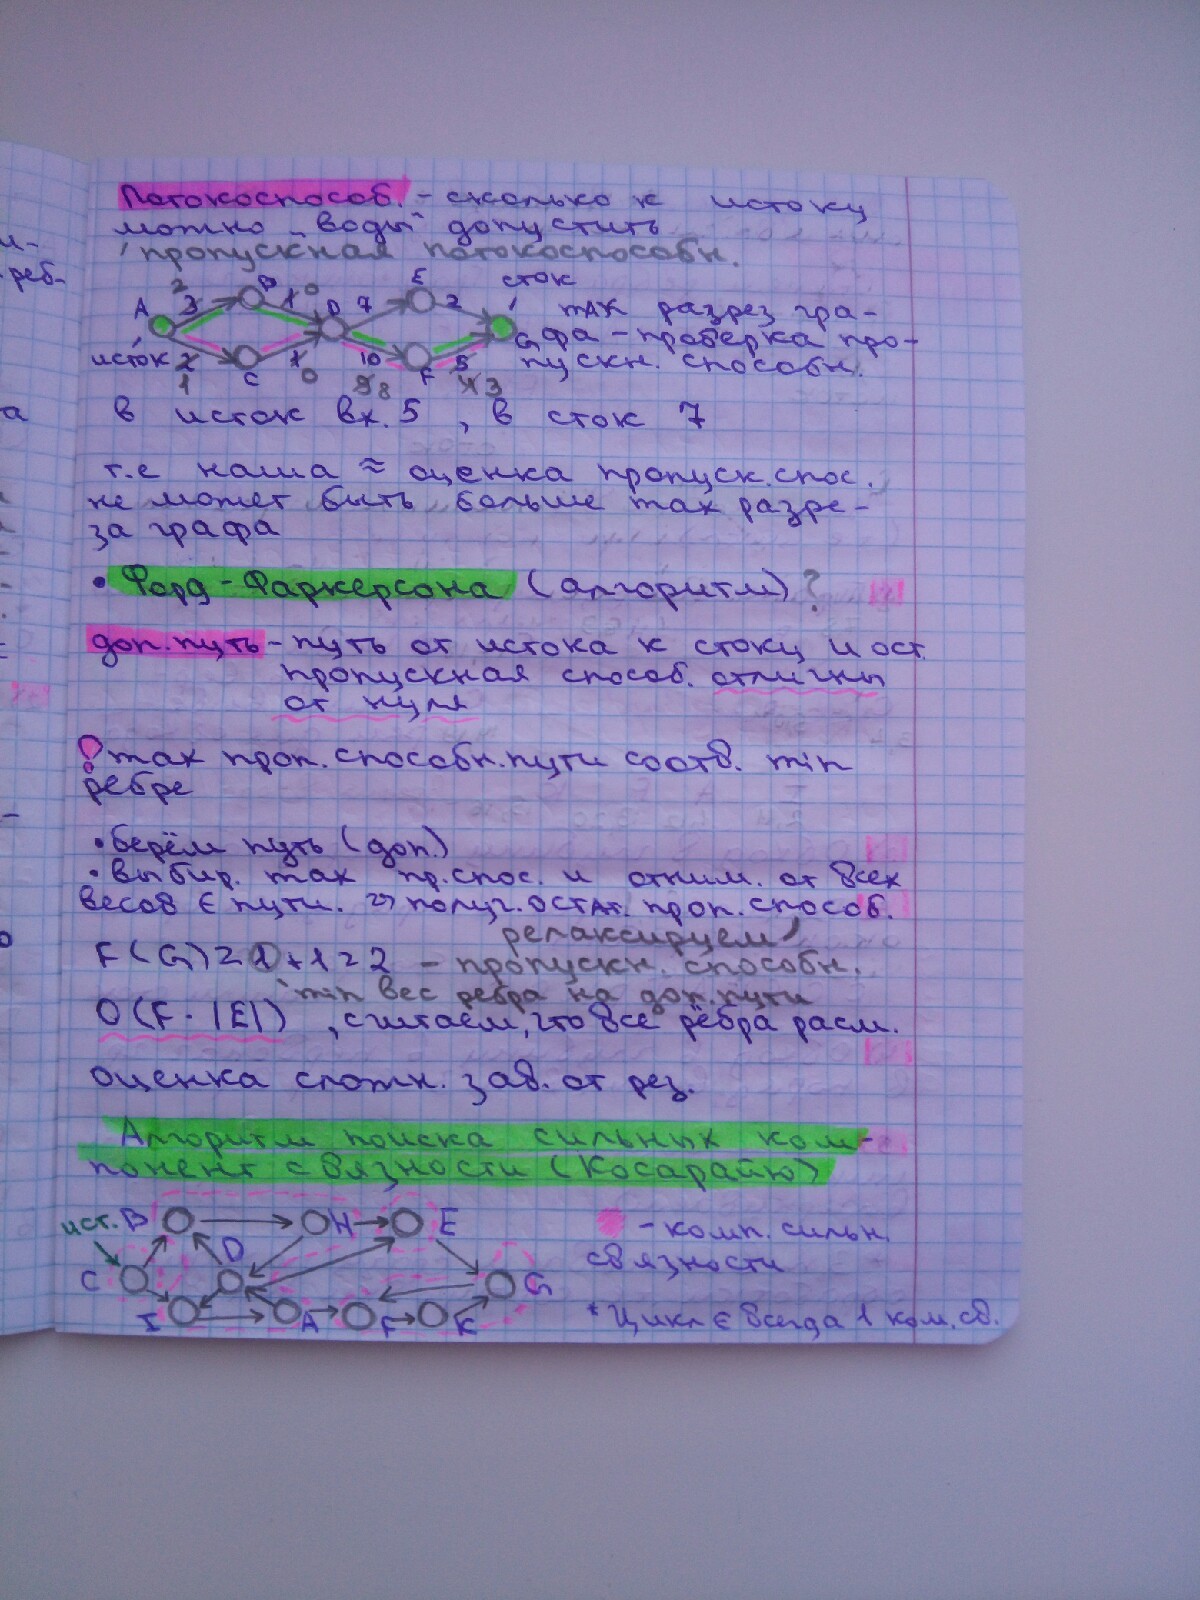 Потокоспособ. - сколько к истоку
можно „воды" допустить
пропускная потокоспособн.
сток
A 3 2 B 1 0 D 7 E 2
исток 2 1 C 1 0 10 9 8 F 5 4 3 G
max разрез гра-
фа - проверка про-
пускн. способн.
в исток вх. 5 , в сток 7
т.е наша ≈ оценка пропуск. спос.
не может быть больше max разре-
за графа
• Форд-Фаркерсона (алгоритм) ?
доп. путь - путь от истока к стоку и ост.
пропускная способ. отличны
от нуля
! max проп. способн. пути соотв. min
ребре
• берём путь (доп.)
• выбир. max пр. спос. и отним. от всех
весов ∈ пути. => получ. остат. проп. способ.
релаксируем
F(G) = 1 + 1 = 2 - пропускн. способн.
min вес ребра на доп. пути
O(F · |E|) , считаем, что все рёбра расм.
оценка сложн. зав. от рез.
Алгоритм поиска сильных ком-
понент связности (Косарайю)
ист. B H E
C D G
I A F K
- комп. сильн.
связности
* Цикл ∈ всегда 1 ком. св.
м-
реб-
а